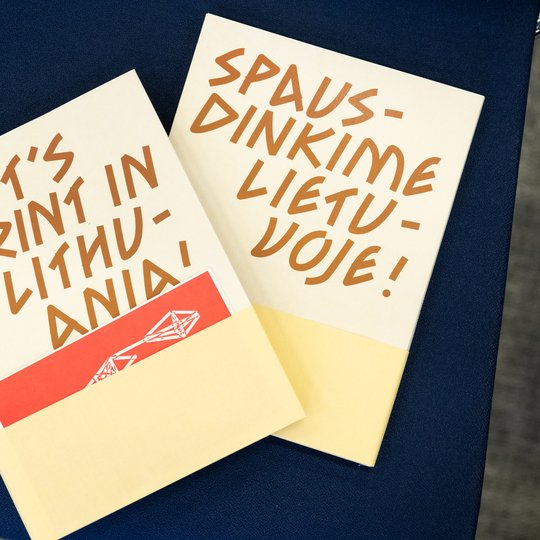 T'S
RINT IN
LITHU-
ANIA!
SPAUS-
DINKIME
LIETU-
VOJE!